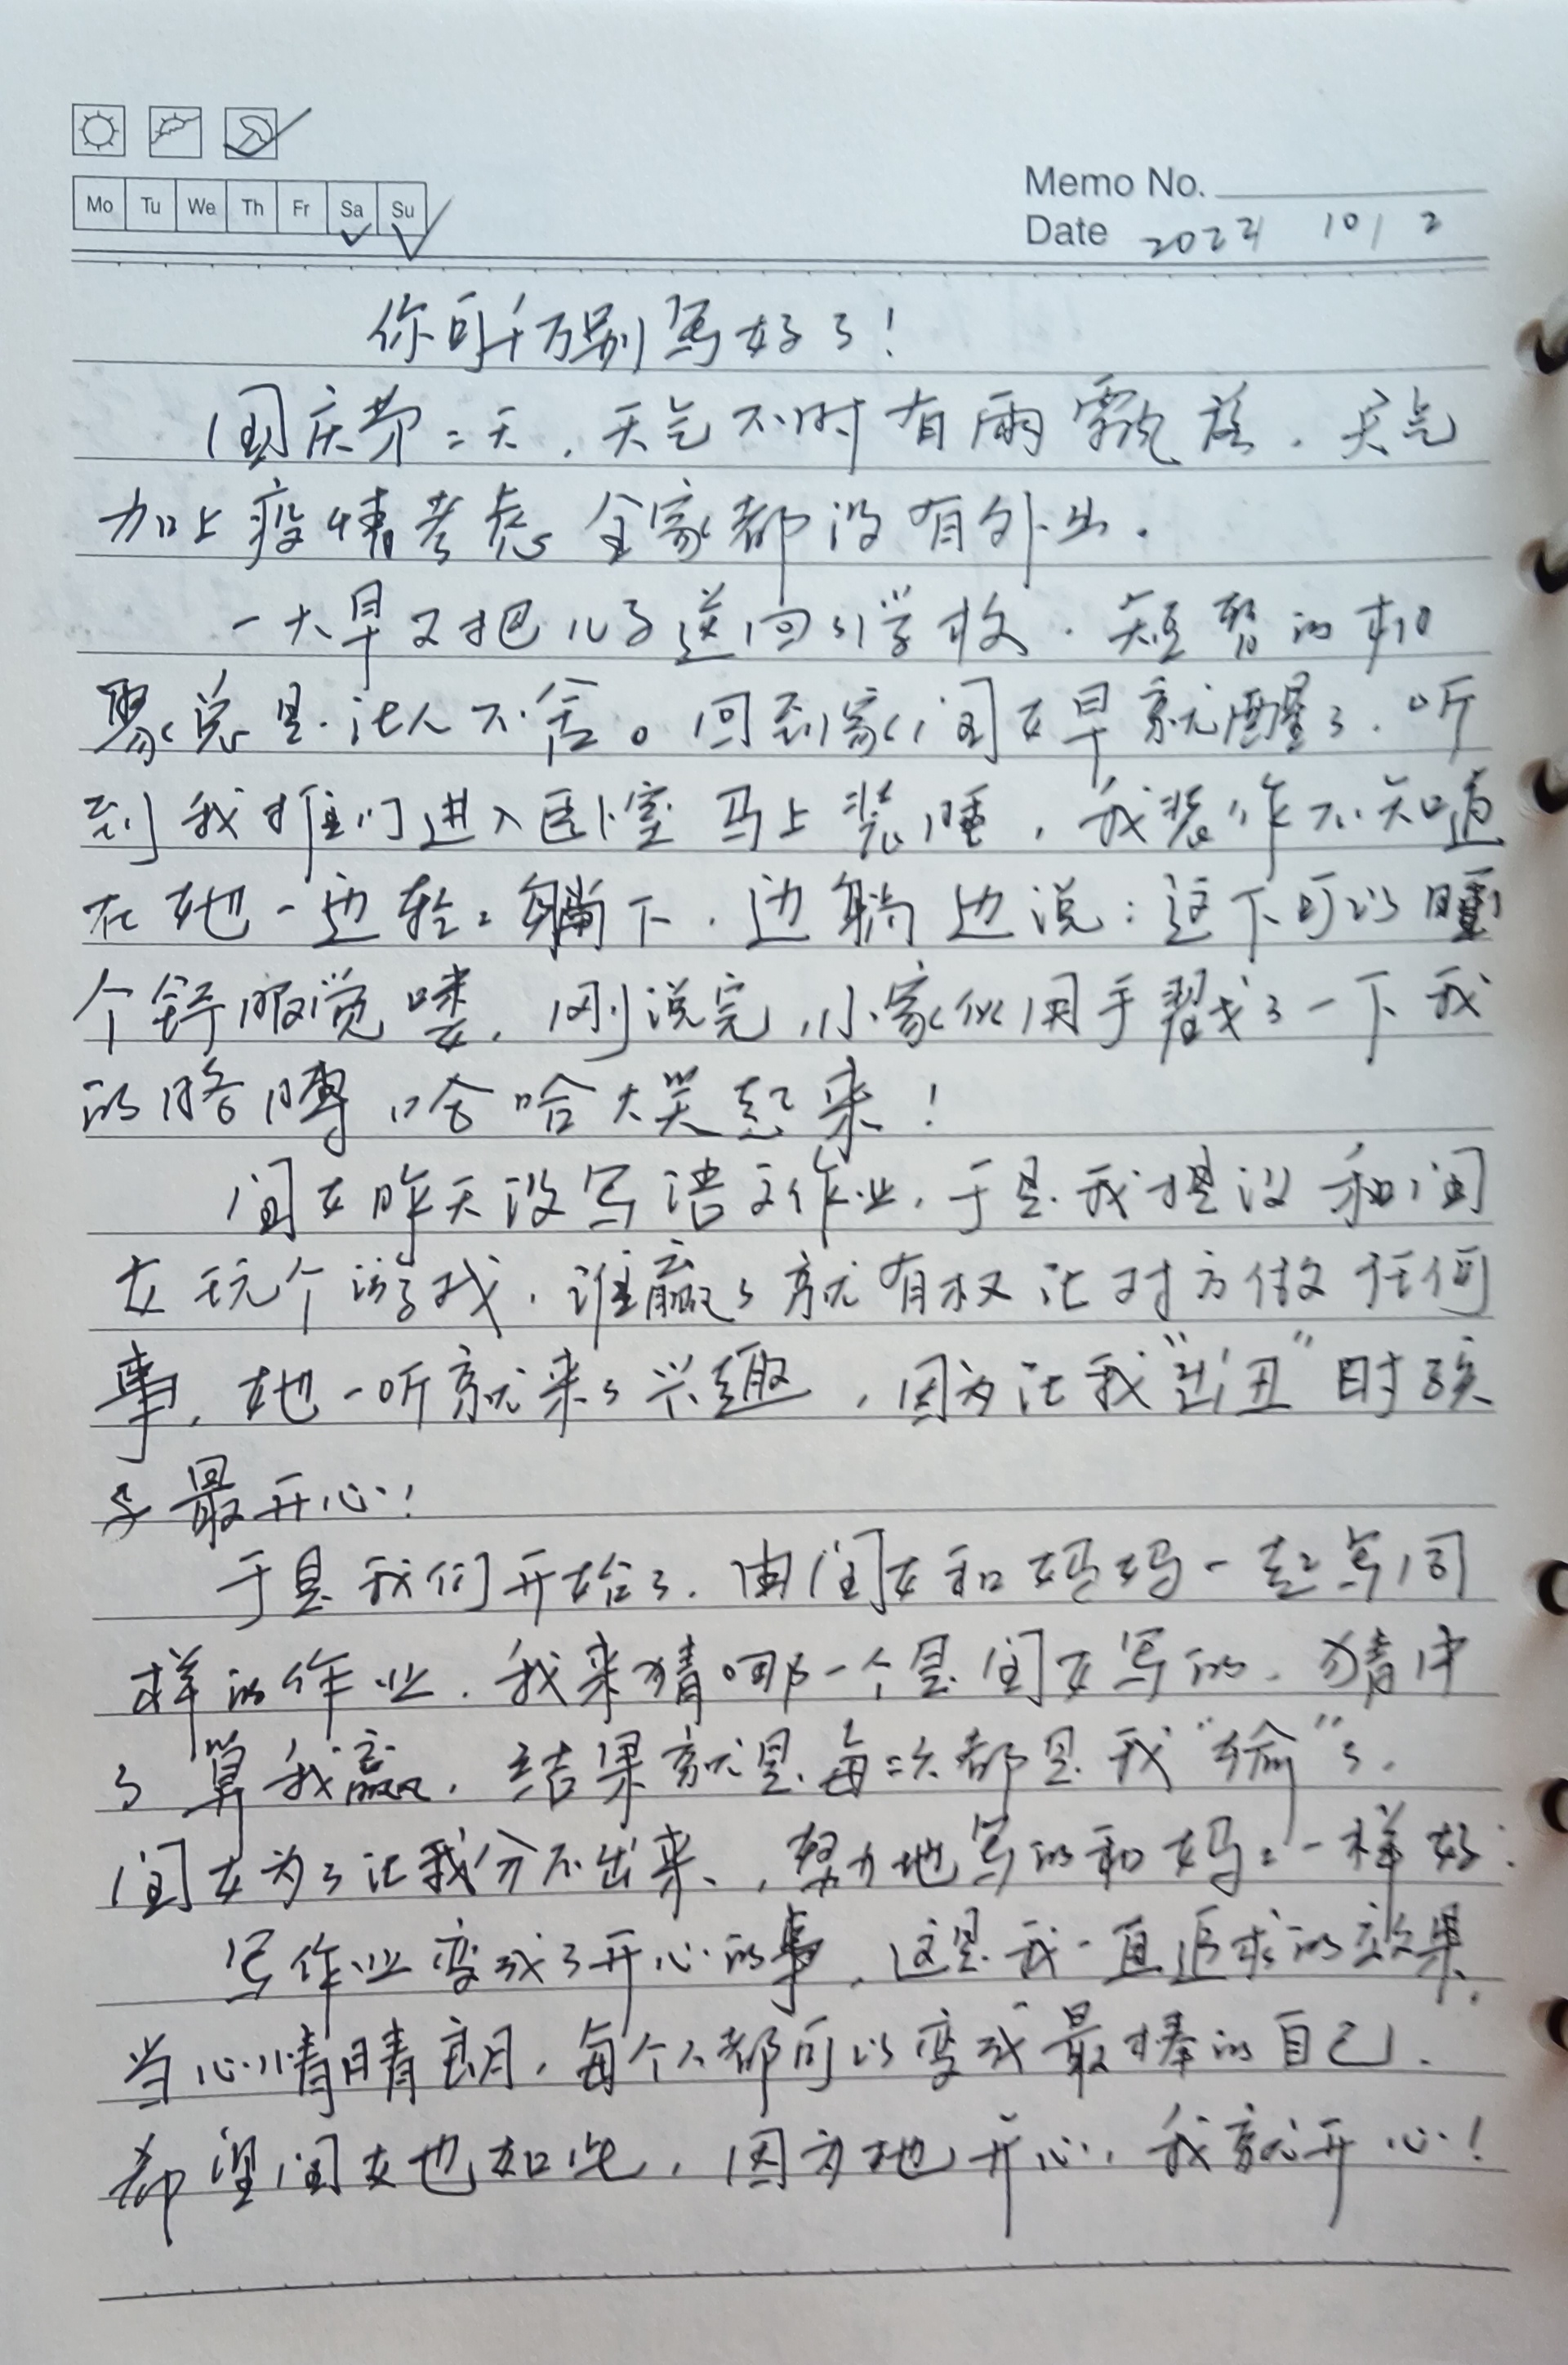 Mo Tu We Th Fr Sa Su
Memo No.
Date 2022 10/2
你可千万别写好了!
国庆第二天,天气不时有雨飘落.天气
加上疫情考虑全家都没有外出.
一大早又把儿子送回了学校.短暂的相
聚总是让人不舍。回到家闺女早就醒了.听
到我推门进入卧室马上装睡,我装作不知道
在她一边轻轻躺下.边躺边说:这下可以睡
个舒服觉喽,刚说完,小家伙用手戳了一下我
的胳膊,哈哈大笑起来!
闺女昨天没写语文作业,于是我提议和闺
女玩个游戏.谁赢了就有权让对方做任何
事,她一听就来了兴趣,因为让我“出丑”时孩
子最开心!
于是我们开始了.由闺女和妈妈一起写同
样的作业.我来猜哪一个是闺女写的.猜中
了算我赢.结果就是每次都是我“输”了.
闺女为了让我分不出来,努力地写的和妈妈一样好.
写作业变成了开心的事,这是我一直追求的效果.
当心情晴朗,每个人都可以变成最棒的自己.
希望闺女也如此,因为她开心,我就开心!